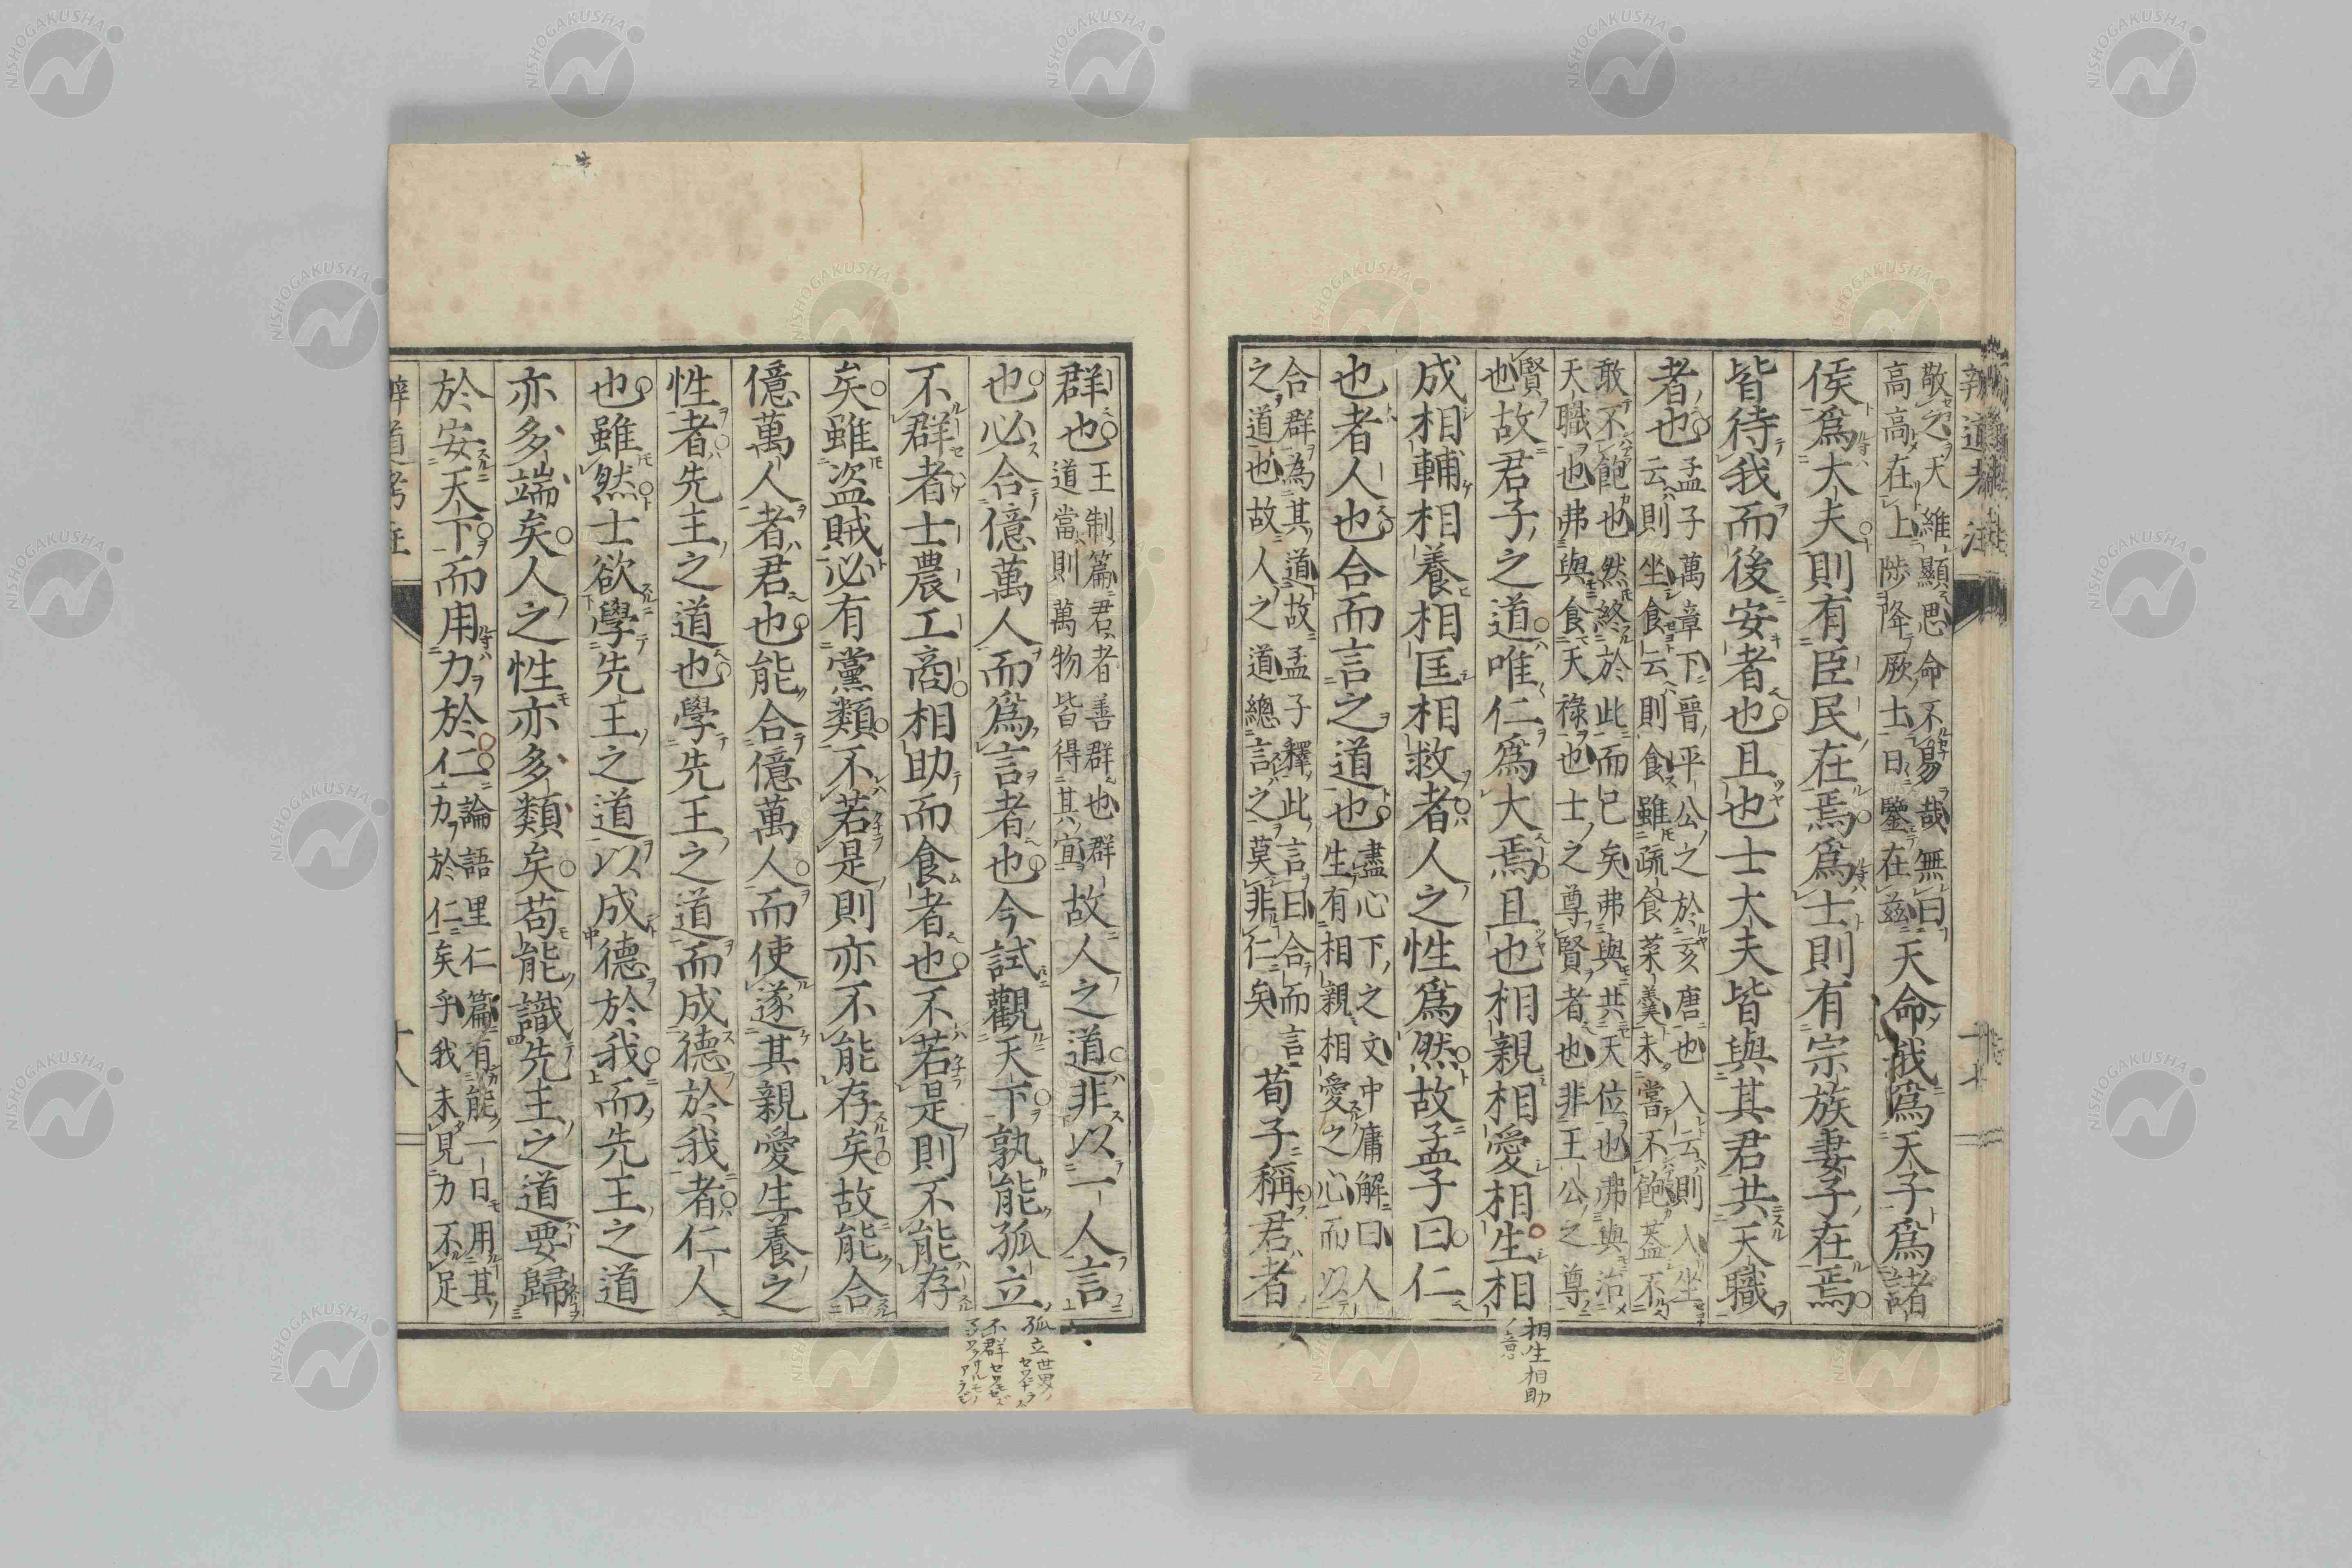 辨道考注
敬之天維顯思命不易哉無曰
高高在上陟降厥士日鑒在茲
天命我爲天子爲諸
侯爲大夫則有臣民在焉爲士則有宗族妻子在焉
皆待我而後安者也且也士大夫皆與其君共天職
者也
孟子萬章下晉平公之於亥唐也入云則入坐
云則坐食云則食雖疏食菜羹未嘗不飽蓋不
敢不飽也然終於此而已矣弗與共天位也弗與治
天職也弗與食天祿也士之尊賢者也非王公之尊
賢
也
故君子之道唯仁爲大焉且也相親相愛相生相
成相輔相養相匡相救者人之性爲然故孟子曰仁
也者人也合而言之道也
盡心下之文中庸解曰人
生有相親相愛之心而以
合群爲其道故孟子釋此言曰合而言
之道也故人之道總言之莫非仁矣
荀子稱君者
相生相助
群也
王制篇君者善群也群
道當則萬物皆得其宜
故人之道非以一人言
也必合億萬人而爲言者也今試觀天下孰能孤立
不群者士農工商相助而食者也不若是則不能存
矣雖盜賊必有黨類不若是則亦不能存矣故能合
億萬人者君也能合億萬人而使遂其親愛生養之
性者先王之道也學先王之道而成德於我者仁人
也雖然士欲學先王之道以成德於我而先王之道
亦多端矣人之性亦多類矣苟能識先王之道要歸
於安天下而用力於仁
論語里仁篇有能一日用其
力於仁矣乎我未見力不足
辨道考注
十八
孤立世界ノ
不群